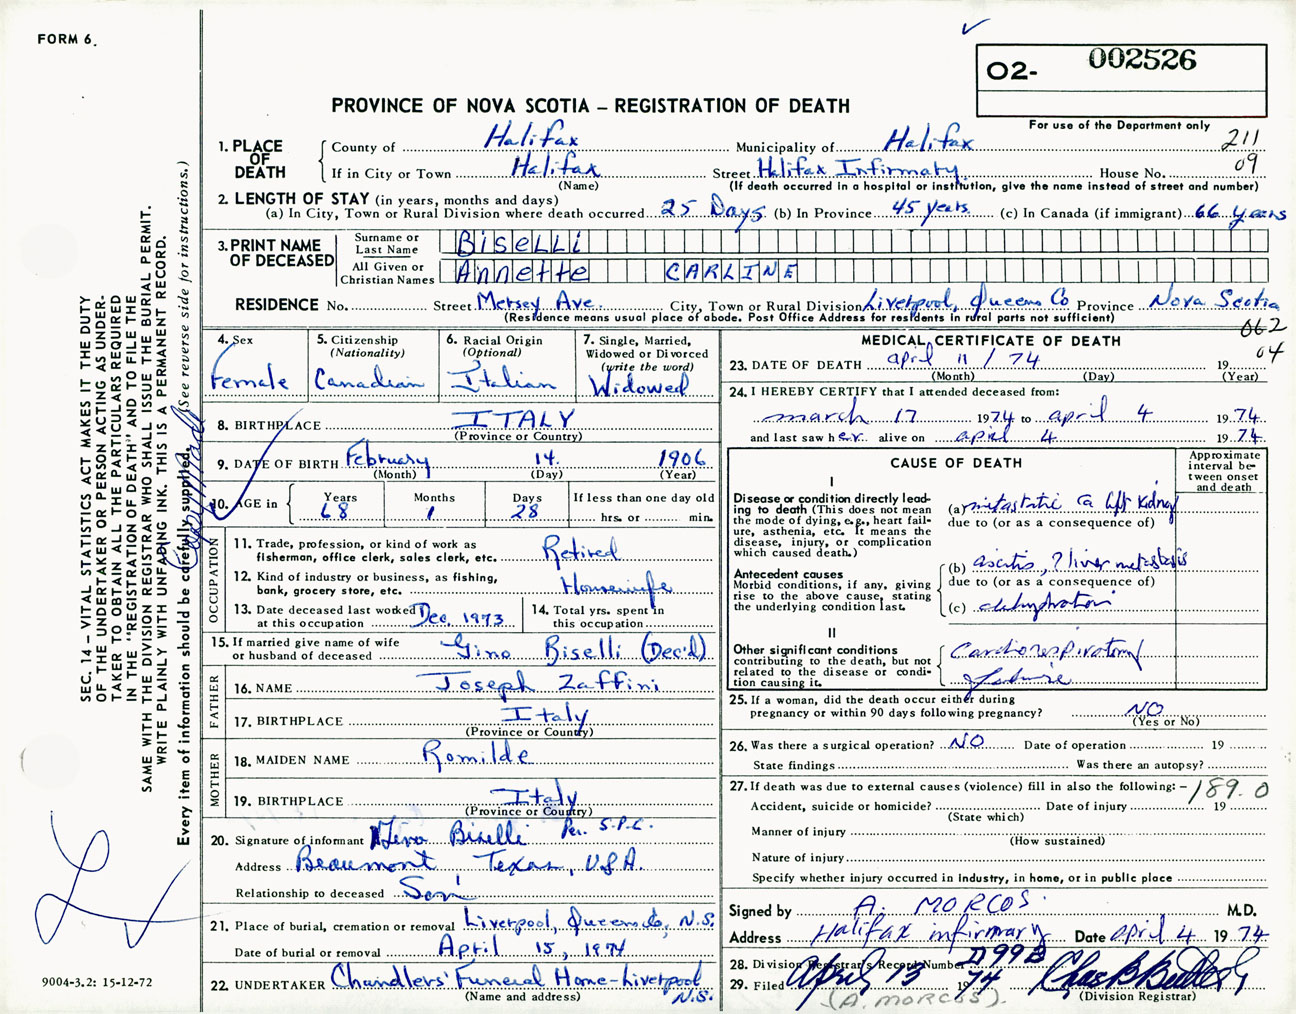 FORM 6.
O2- 002526
PROVINCE OF NOVA SCOTIA – REGISTRATION OF DEATH
For use of the Department only
211
09
1. PLACE OF DEATH
County of Halifax Municipality of Halifax
If in City or Town Halifax Street Halifax Infirmary House No.
(Name) (If death occurred in a hospital or institution, give the name instead of street and number)
2. LENGTH OF STAY (in years, months and days)
(a) In City, Town or Rural Division where death occurred 25 Days (b) In Province 45 years (c) In Canada (if immigrant) 66 years
3. PRINT NAME OF DECEASED
Surname or Last Name BISELLI
All Given or Christian Names Annette CARLINE
RESIDENCE No. Street Mersey Ave. City, Town or Rural Division Liverpool, Queens Co Province Nova Scotia
(Residence means usual place of abode. Post Office Address for residents in rural parts not sufficient)
062
04
4. Sex
Female
5. Citizenship (Nationality)
Canadian
6. Racial Origin (Optional)
Italian
7. Single, Married, Widowed or Divorced (write the word)
Widowed
8. BIRTHPLACE ITALY
(Province or Country)
9. DATE OF BIRTH February 14 1906
(Month) (Day) (Year)
10. AGE in Years 68 Months 1 Days 28 If less than one day old hrs. or min.
OCCUPATION
11. Trade, profession, or kind of work as fisherman, office clerk, sales clerk, etc. Retired
12. Kind of industry or business, as fishing, bank, grocery store, etc. Housewife
13. Date deceased last worked at this occupation Dec. 1973
14. Total yrs. spent in this occupation
15. If married give name of wife or husband of deceased Gino Biselli (Dec'd)
FATHER
16. NAME Joseph Zaffini
17. BIRTHPLACE Italy
(Province or Country)
MOTHER
18. MAIDEN NAME Romilde
19. BIRTHPLACE Italy
(Province or Country)
20. Signature of informant Biselli Per. S.P.C.
Address Beaumont Texas, USA.
Relationship to deceased Son
21. Place of burial, cremation or removal Liverpool, Queens Co, N.S.
Date of burial or removal April 15, 1974
22. UNDERTAKER Chandlers' Funeral Home-Liverpool N.S.
(Name and address)
MEDICAL CERTIFICATE OF DEATH
23. DATE OF DEATH april 11 / 74 19
(Month) (Day) (Year)
24. I HEREBY CERTIFY that I attended deceased from:
march 17 1974 to april 4 1974
and last saw her alive on april 4 1974
CAUSE OF DEATH
Approximate interval between onset and death
I
Disease or condition directly leading to death (This does not mean the mode of dying, e.g., heart failure, asthenia, etc. It means the disease, injury, or complication which caused death.)
(a) metastatic ca left kidney
due to (or as a consequence of)
Antecedent causes
Morbid conditions, if any, giving rise to the above cause, stating the underlying condition last.
(b) ascitis, ? liver metastasis
due to (or as a consequence of)
(c) dehydration
II
Other significant conditions contributing to the death, but not related to the disease or condition causing it.
Cardiorespiratory failure
25. If a woman, did the death occur either during pregnancy or within 90 days following pregnancy? NO
(Yes or No)
26. Was there a surgical operation? NO Date of operation 19
State findings Was there an autopsy?
27. If death was due to external causes (violence) fill in also the following: – 189.0
Accident, suicide or homicide? Date of injury 19
(State which)
Manner of injury
(How sustained)
Nature of injury
Specify whether injury occurred in industry, in home, or in public place
Signed by A. MORCOS M.D.
Address Halifax infirmary Date april 4 1974
28. Division Registrar's Record Number D99B
29. Filed April 13 1974
(Division Registrar)
(A. MORCOS).
SEC. 14 – VITAL STATISTICS ACT MAKES IT THE DUTY
OF THE UNDERTAKER OR PERSON ACTING AS UNDER-
TAKER TO OBTAIN ALL THE PARTICULARS REQUIRED
IN THE "REGISTRATION OF DEATH" AND TO FILE THE
SAME WITH THE DIVISION REGISTRAR WHO SHALL ISSUE THE BURIAL PERMIT.
WRITE PLAINLY WITH UNFADING INK. THIS IS A PERMANENT RECORD.
Every item of information should be carefully supplied. (See reverse side for instructions.)
9004-3.2: 15-12-72